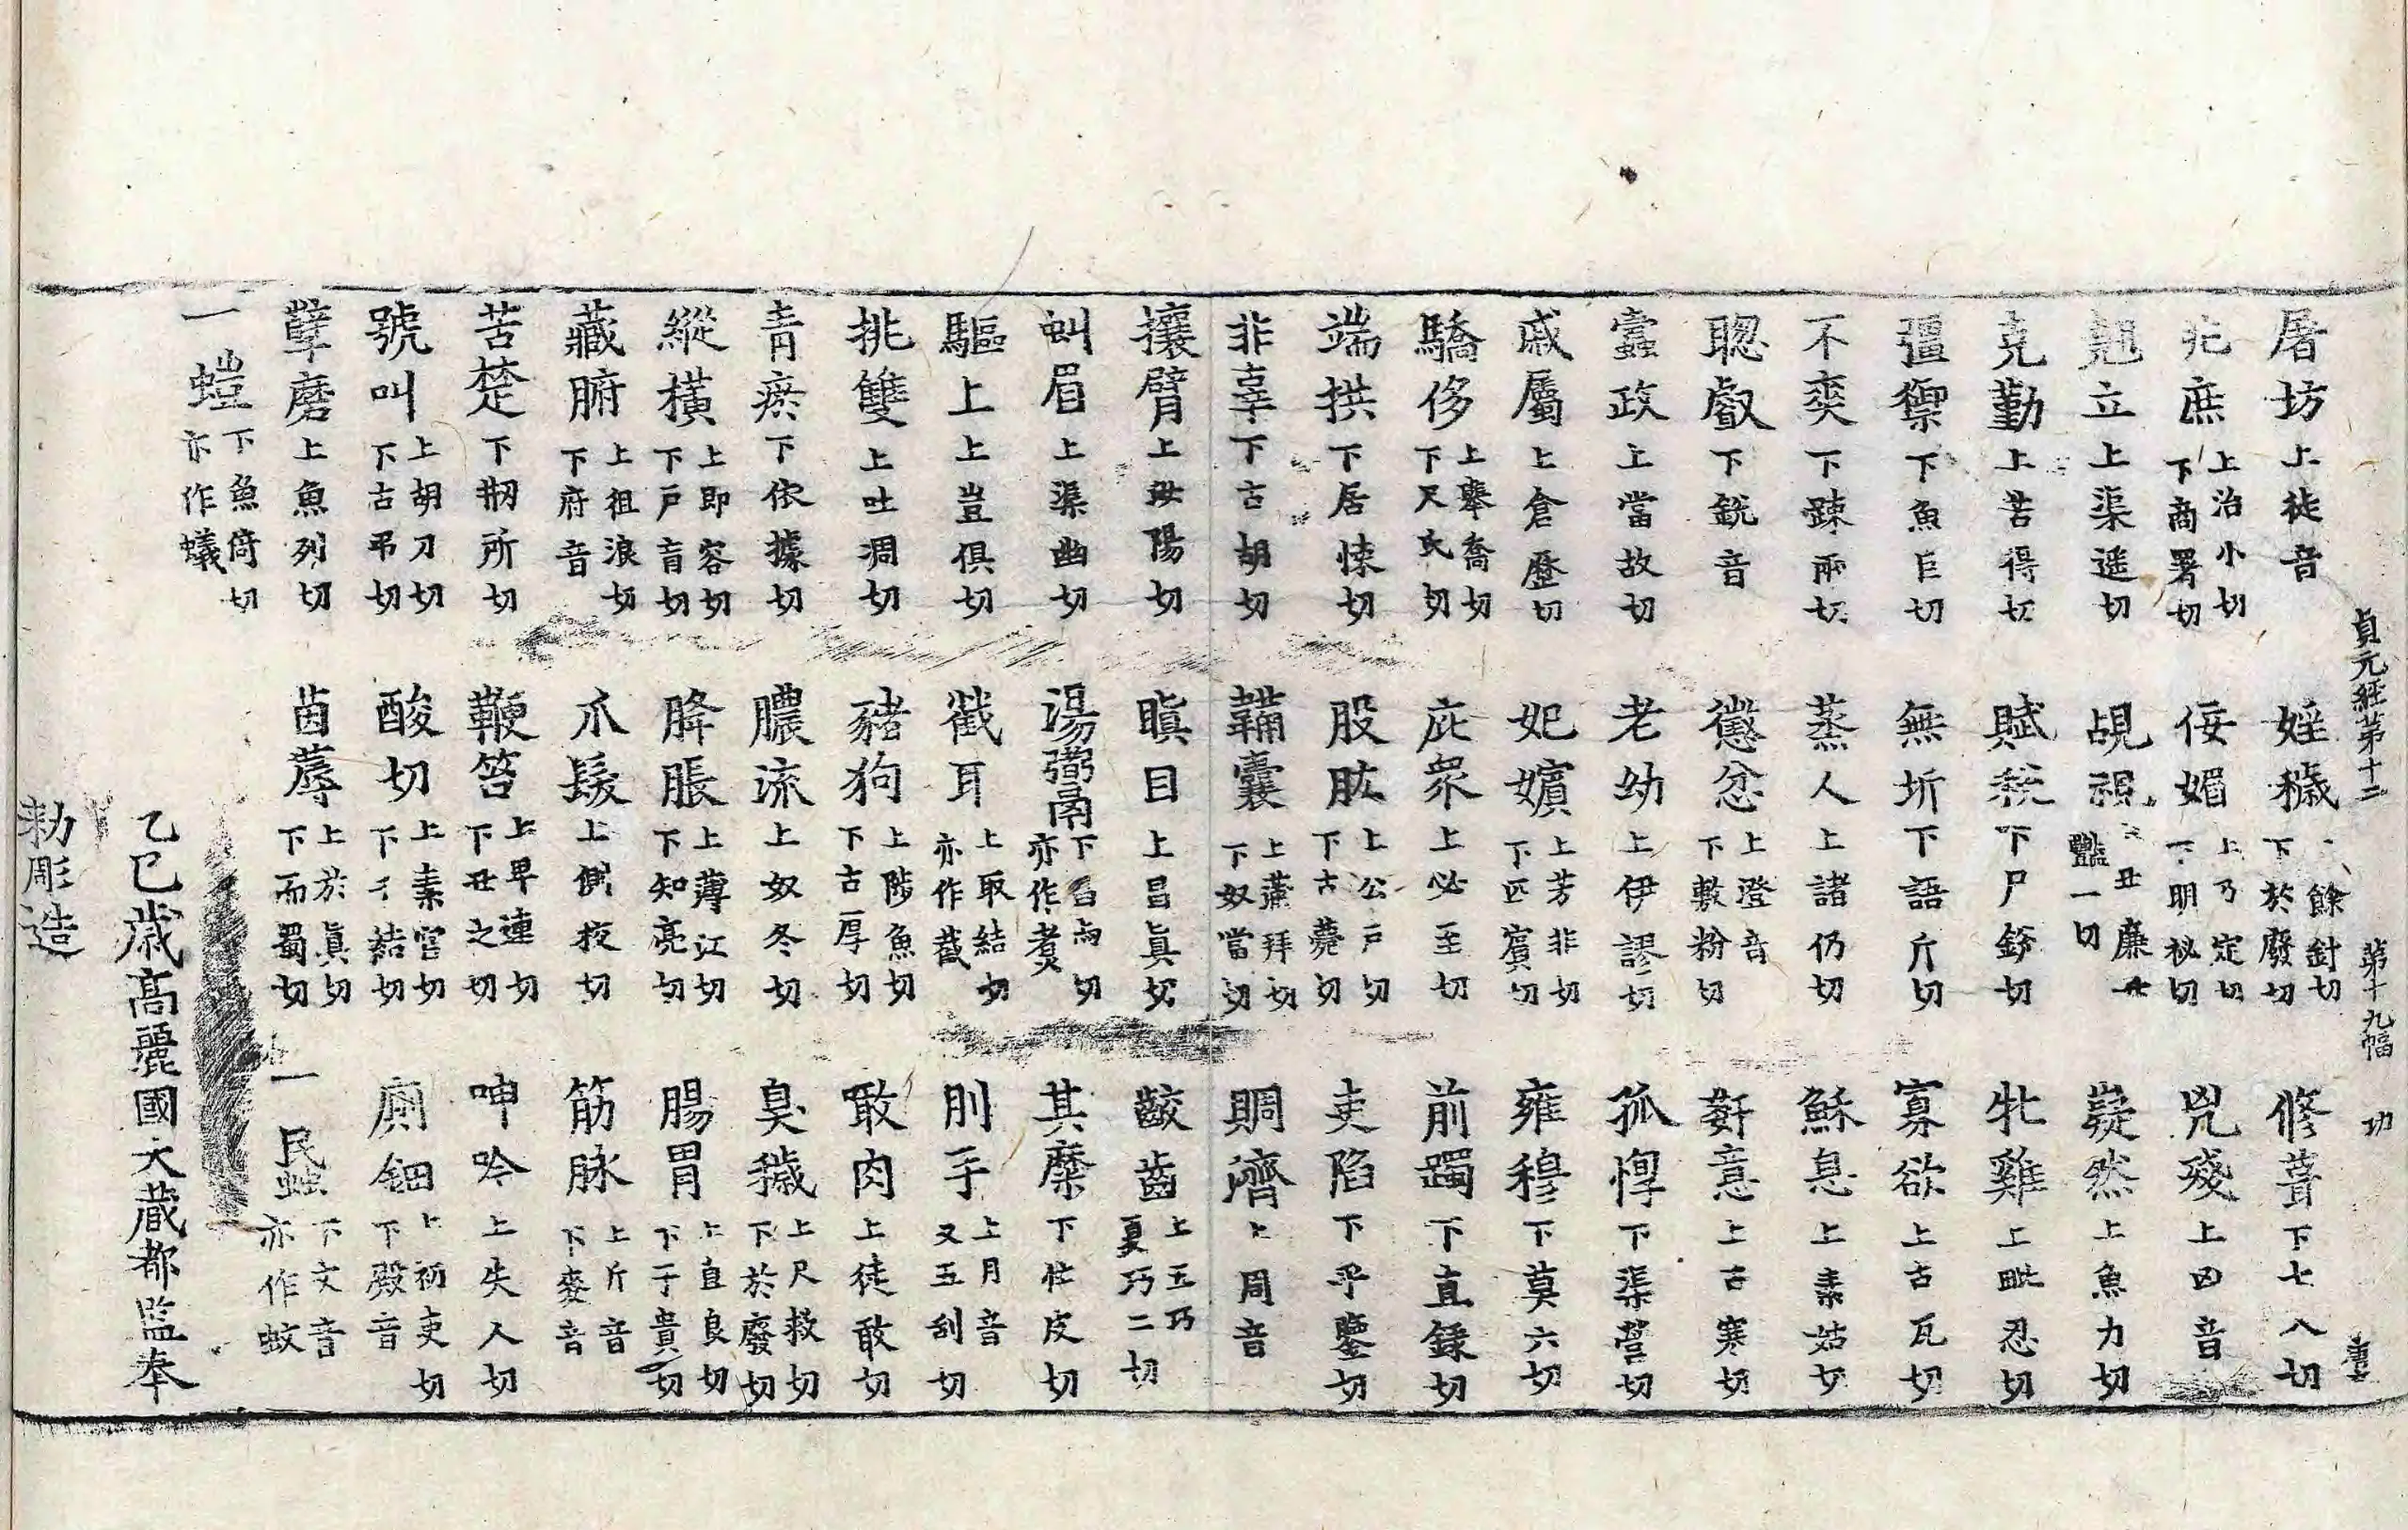 貞元經第十二 第十九幅 功
屠坊上徒音 婬穢上餘針切下於廢切 修葺下七入切
兆庶上治小切下商署切 佞媚上乃定切下明秘切 兇殘上凶音
翹立上渠遥切 覘視上丑廉丑豔二切 嶷然上魚力切
克勤上苦得切 賦稅下尸銳切 牝雞上毗忍切
彊禦下魚巨切 無圻下語斤切 寡欲上古瓦切
不爽下踈兩切 蒸人上諸仍切 穌息上素姑切
聦叡下銳音 懲忿上澄音下敷粉切 姧意上古寒切
蠧政上當故切 老幼上伊謬切 孤惸下渠營切
戚屬上倉歷切 妃嬪上芳非切下匹賓切 雍穆下莫六切
驕侈上舉喬切下尺氏切 庇衆上必至切 前躅下直録切
端拱下居悚切 股肱上公戶切下古薨切 吏陷下乎鑒切
非辜下古胡切 鞴囊上蒲拜切下奴當切 賙濟上周音
攘臂上汝陽切 瞋目上昌眞切 齩齒上五巧夏巧二切
虯眉上渠幽切 湯鬻下昌兩切亦作煮 其糜下忙皮切
驅上上豈俱切 截耳上取結切亦作截 刖手上月音又五刮切
挑雙上吐凋切 豬狗上陟魚切下古厚切 噉肉上徒敢切
青瘀下依據切 膿流上奴冬切 臭穢上尺救切下於廢切
縱橫上即容切下戶盲切 胮脹上薄江切下知亮切 腸胃上直良切下于貴切
藏腑上祖浪切下府音 爪髮上側夜切 筋脉上斤音下麥音
苦楚下刱所切 鞭笞上卑連切下丑之切 呻吟上失人切
號叫上胡刀切下古弔切 酸切上素官切下千結切 廁鈿上初吏切下殿音
孽磨上魚列切 茵蓐上於眞切下而蜀切 一民䖟下文音亦作蚊
一螘下魚倚切亦作蟻
乙巳歲高麗國大藏都監奉
勅彫造